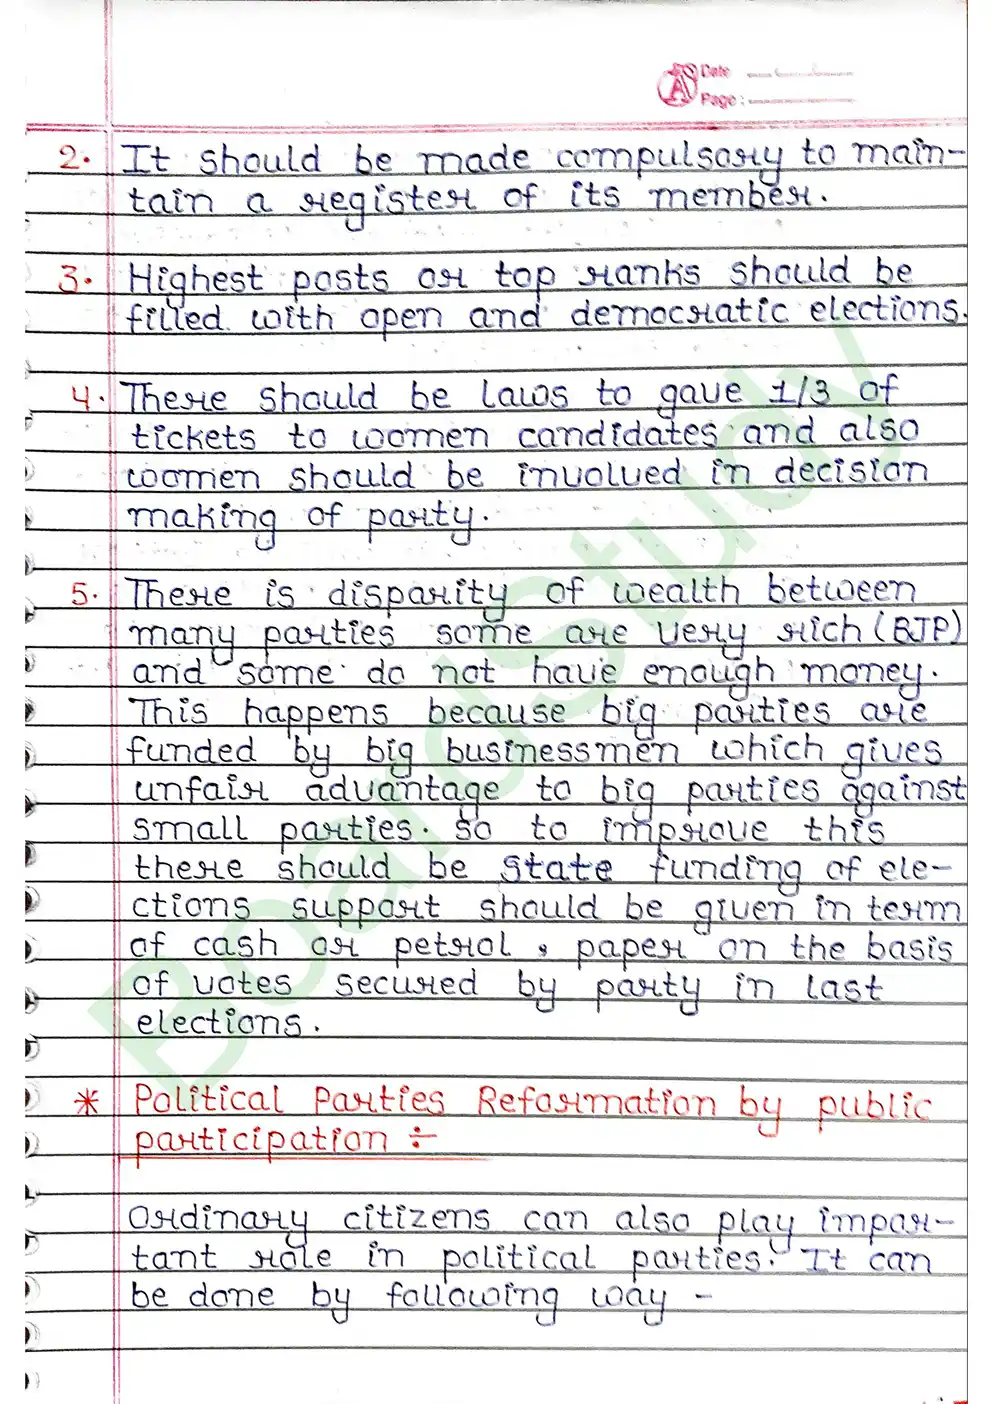 Date
Page :
2. It should be made compulsory to main-
tain a register of its member.
3. Highest posts or top ranks should be
filled with open and democratic elections.
4. There should be laws to gave 1/3 of
tickets to women candidates and also
women should be involved in decision
making of party.
5. There is disparity of wealth between
many parties some are very rich (BJP)
and some do not have enough money.
This happens because big parties are
funded by big businessmen which gives
unfair advantage to big parties against
small parties. So to improve this
there should be state funding of ele-
ctions support should be given in term
of cash or petrol, paper on the basis
of votes secured by party in last
elections.
* Political Parties Reformation by public
participation ÷
Ordinary citizens can also play impor-
tant role in political parties. It can
be done by following way -
BoardStudy